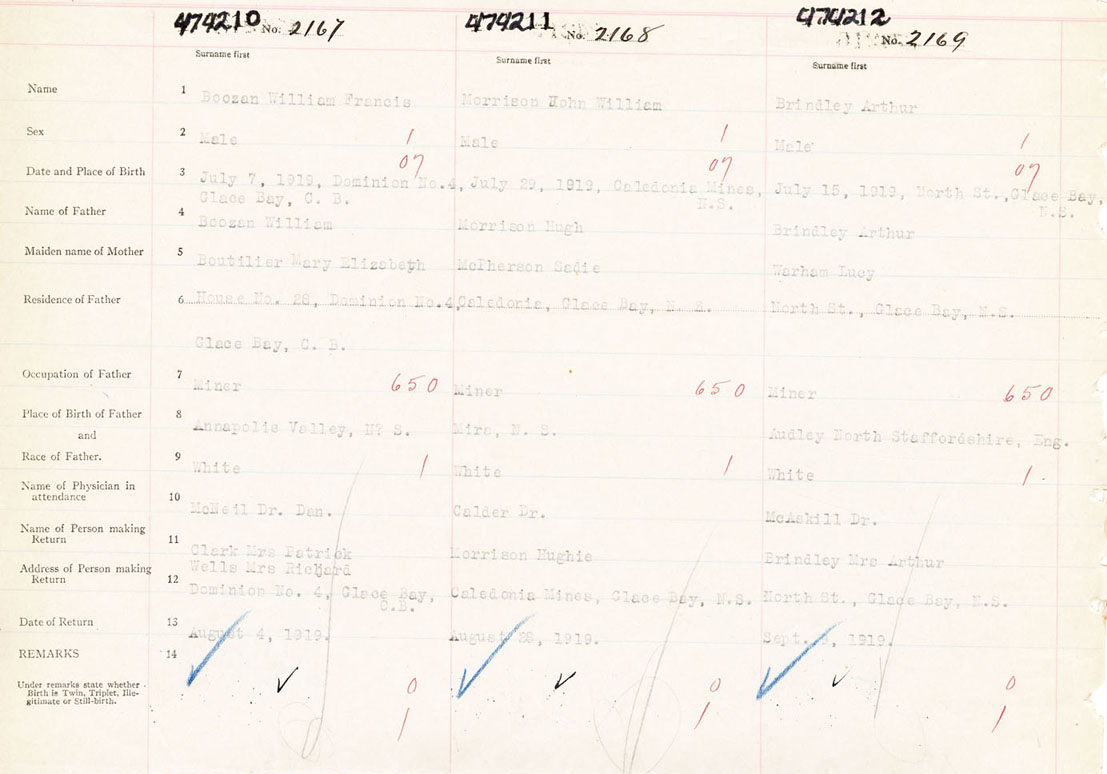 474210 No. 2167 474211 No. 2168 474212 No. 2169
Surname first Surname first Surname first
Name 1 Boozan William Francis Morrison Hohn William Brindley Arthur
Sex 2 Male 1 Male 1 Male 1
07 07 07
Date and Place of Birth 3 July 7, 1919, Dominion No.4, July 29, 1919, Caledonia Mines, July 15, 1919, North St.,Glace Bay,
Glace Bay, C. B. N.S. N.S.
Name of Father 4 Boozan William Morrison Hugh Brindley Arthur
Maiden name of Mother 5 Boutilier Mary Elizabeth McPherson Sadie Warham Lucy
Residence of Father 6 House No. 28, Dominion No.4, Caledonia, Glace Bay, N. S. North St., Glace Bay, N.S.
Glace Bay, C. B.
Occupation of Father 7 Miner 650 Miner 650 Miner 650
Place of Birth of Father 8 Annapolis Valley, N? S. Mira, N. S. Audley North Staffordshire, Eng.
and
Race of Father. 9 White 1 White 1 White 1
Name of Physician in
attendance 10 McNeil Dr. Dan. Calder Dr. McAskill Dr.
Name of Person making
Return 11 Clark Mrs Patrick Morrison Hughie Brindley Mrs Arthur
Wells Mrs Richard
Address of Person making
Return 12 Dominion No. 4, Glace Bay, Caledonia Mines, Glace Bay, N.S. North St., Glace Bay, N.S.
C.B.
Date of Return 13 August 4, 1919. August 28, 1919. Sept. , 1919.
REMARKS 14
Under remarks state whether
Birth is Twin, Triplet, Ille-
gitimate or Still-birth.
0 0 0
1 1 1